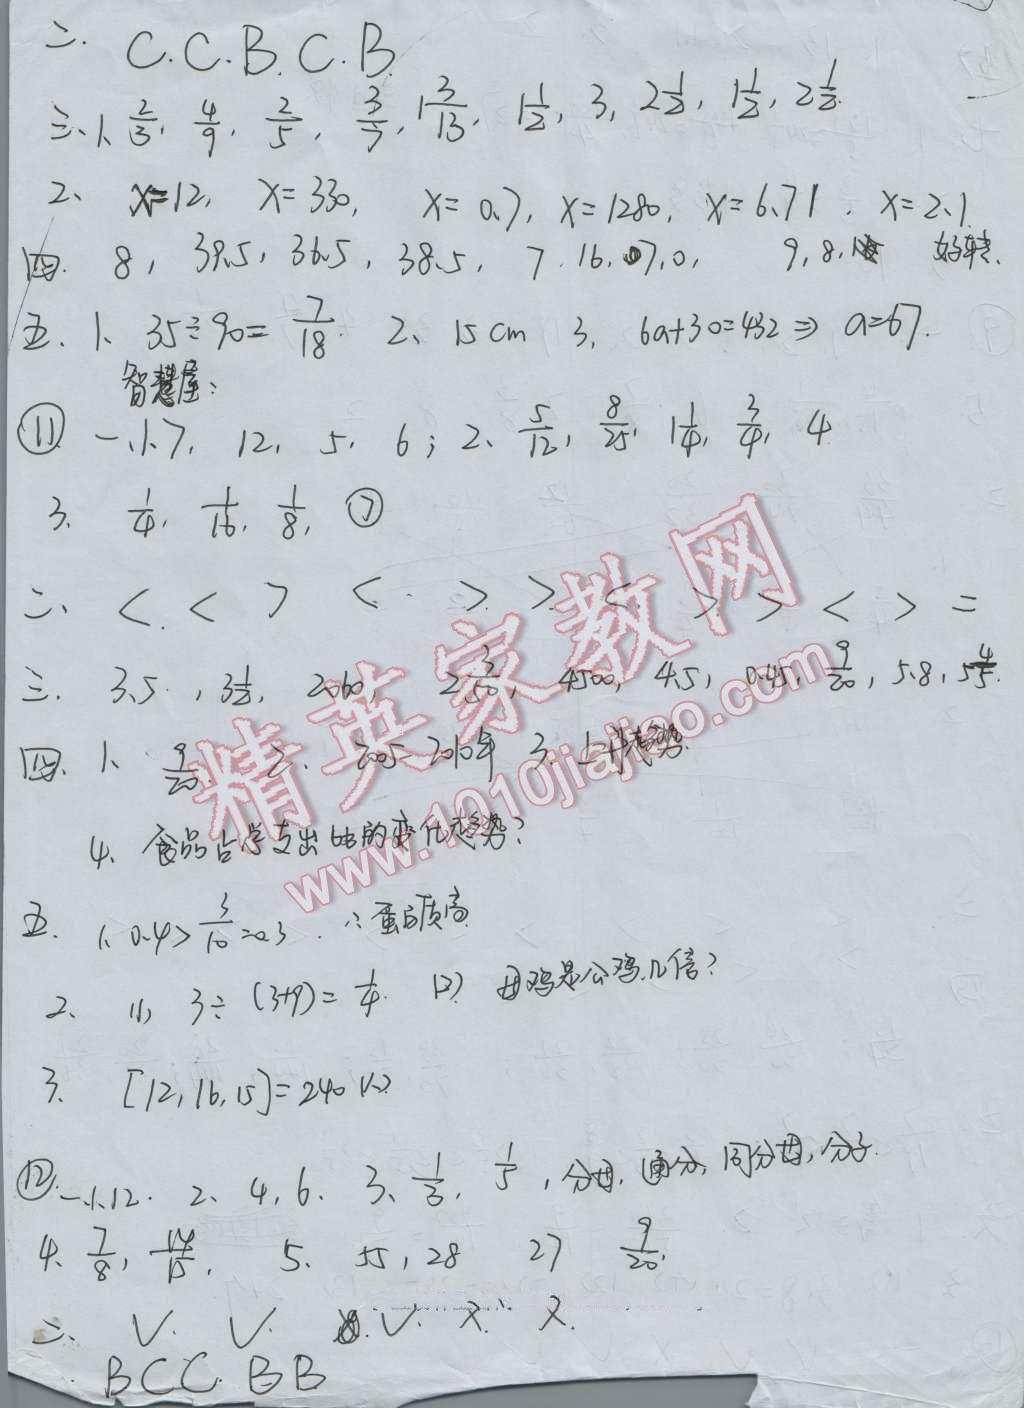 二. C. C. B. C. B.
三、1、2/3, 4/9, 2/5, 3/7, 1 3/13, 1 1/2, 3, 2 1/2, 1 1/2, 2 1/2.
2、 x=12, x=330, x=0.7, x=1280, x=6.71. x=2.1
四. 8, 39.5, 36.5, 38.5, 7. 16. 07, 0, 9, 8, 好转.
五. 1、 35÷90= 7/18. 2、 15cm 3, 6a+30=432 ⇒ a=67.
智慧屋:
⑪ 一.1.7, 12, 5, 6; 2、 5/12, 8/25, 1 1/4, 3/4, 4
3. 1/4, 1/16, 1/8, ⑦
二、 < < > < > > < > > < > =
三. 3.5, 3 1/2, 2060, 2 3/50, 4500, 4.5, 0.45, 9/20, 5.8, 5 4/5.
四. 1、 9/20. 2. 2005-2010年 3. 上升趋势.
4、食品占总支出的变化趋势?
五. 1、0.4> 3/10 =0.3 ∴蛋白质高
2、 (1) 3÷(3+9)= 1/4. (2) 母鸡是公鸡几倍?
3. [12,16,15]=240
⑫ 一.1.12. 2、 4, 6. 3、 1/3, 1/5, 分母, 通分, 同分母, 分子.
4. 7/8, 14/15. 5. 55, 28 27 9/20.
二、 √. √. √. X. X.
B C C. B B
精英家教网
www.1010jiajiao.com